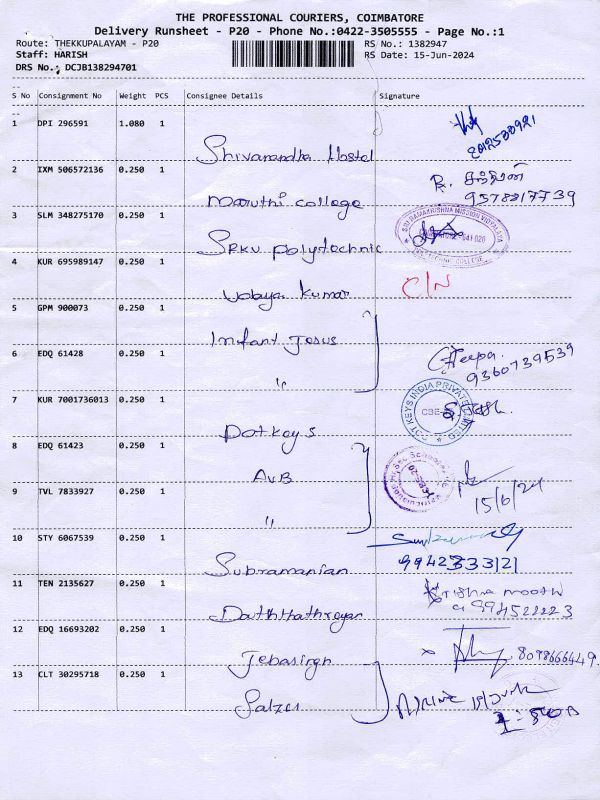 THE PROFESSIONAL COURIERS, COIMBATORE
Delivery Runsheet - P20 - Phone No.:0422-3505555 - Page No.:1
Route: THEKKUPALAYAM - P20 RS No.: 1382947
Staff: HARISH RS Date: 15-Jun-2024
DRS No.: DCJB138294701
S No Consignment No Weight PCS Consignee Details Signature
1 DPI 296591 1.080 1
Shivanandha Hostel
2 IXM 506572136 0.250 1 R.
9578217739
Maruthi college
3 SLM 348275170 0.250 1
SRKV polytechnic
4 KUR 695989147 0.250 1 C/N
Udaya Kumar
5 GPM 900073 0.250 1
Infant Jesus
6 EDQ 61428 0.250 1 Deepa.
" 9360739539
7 KUR 7001736013 0.250 1 DOT KEYS INDIA PRIVATE LIMITED
Dotkeys
8 EDQ 61423 0.250 1
AVB
9 TVL 7833927 0.250 1 15/6/24
"
10 STY 6067539 0.250 1
Subramanian 9942333121
11 TEN 2135627 0.250 1 Krishna moorth
Datththathreyar
12 EDQ 16693202 0.250 1 8098666449.
Jebasingh
13 CLT 30295718 0.250 1
Salzer